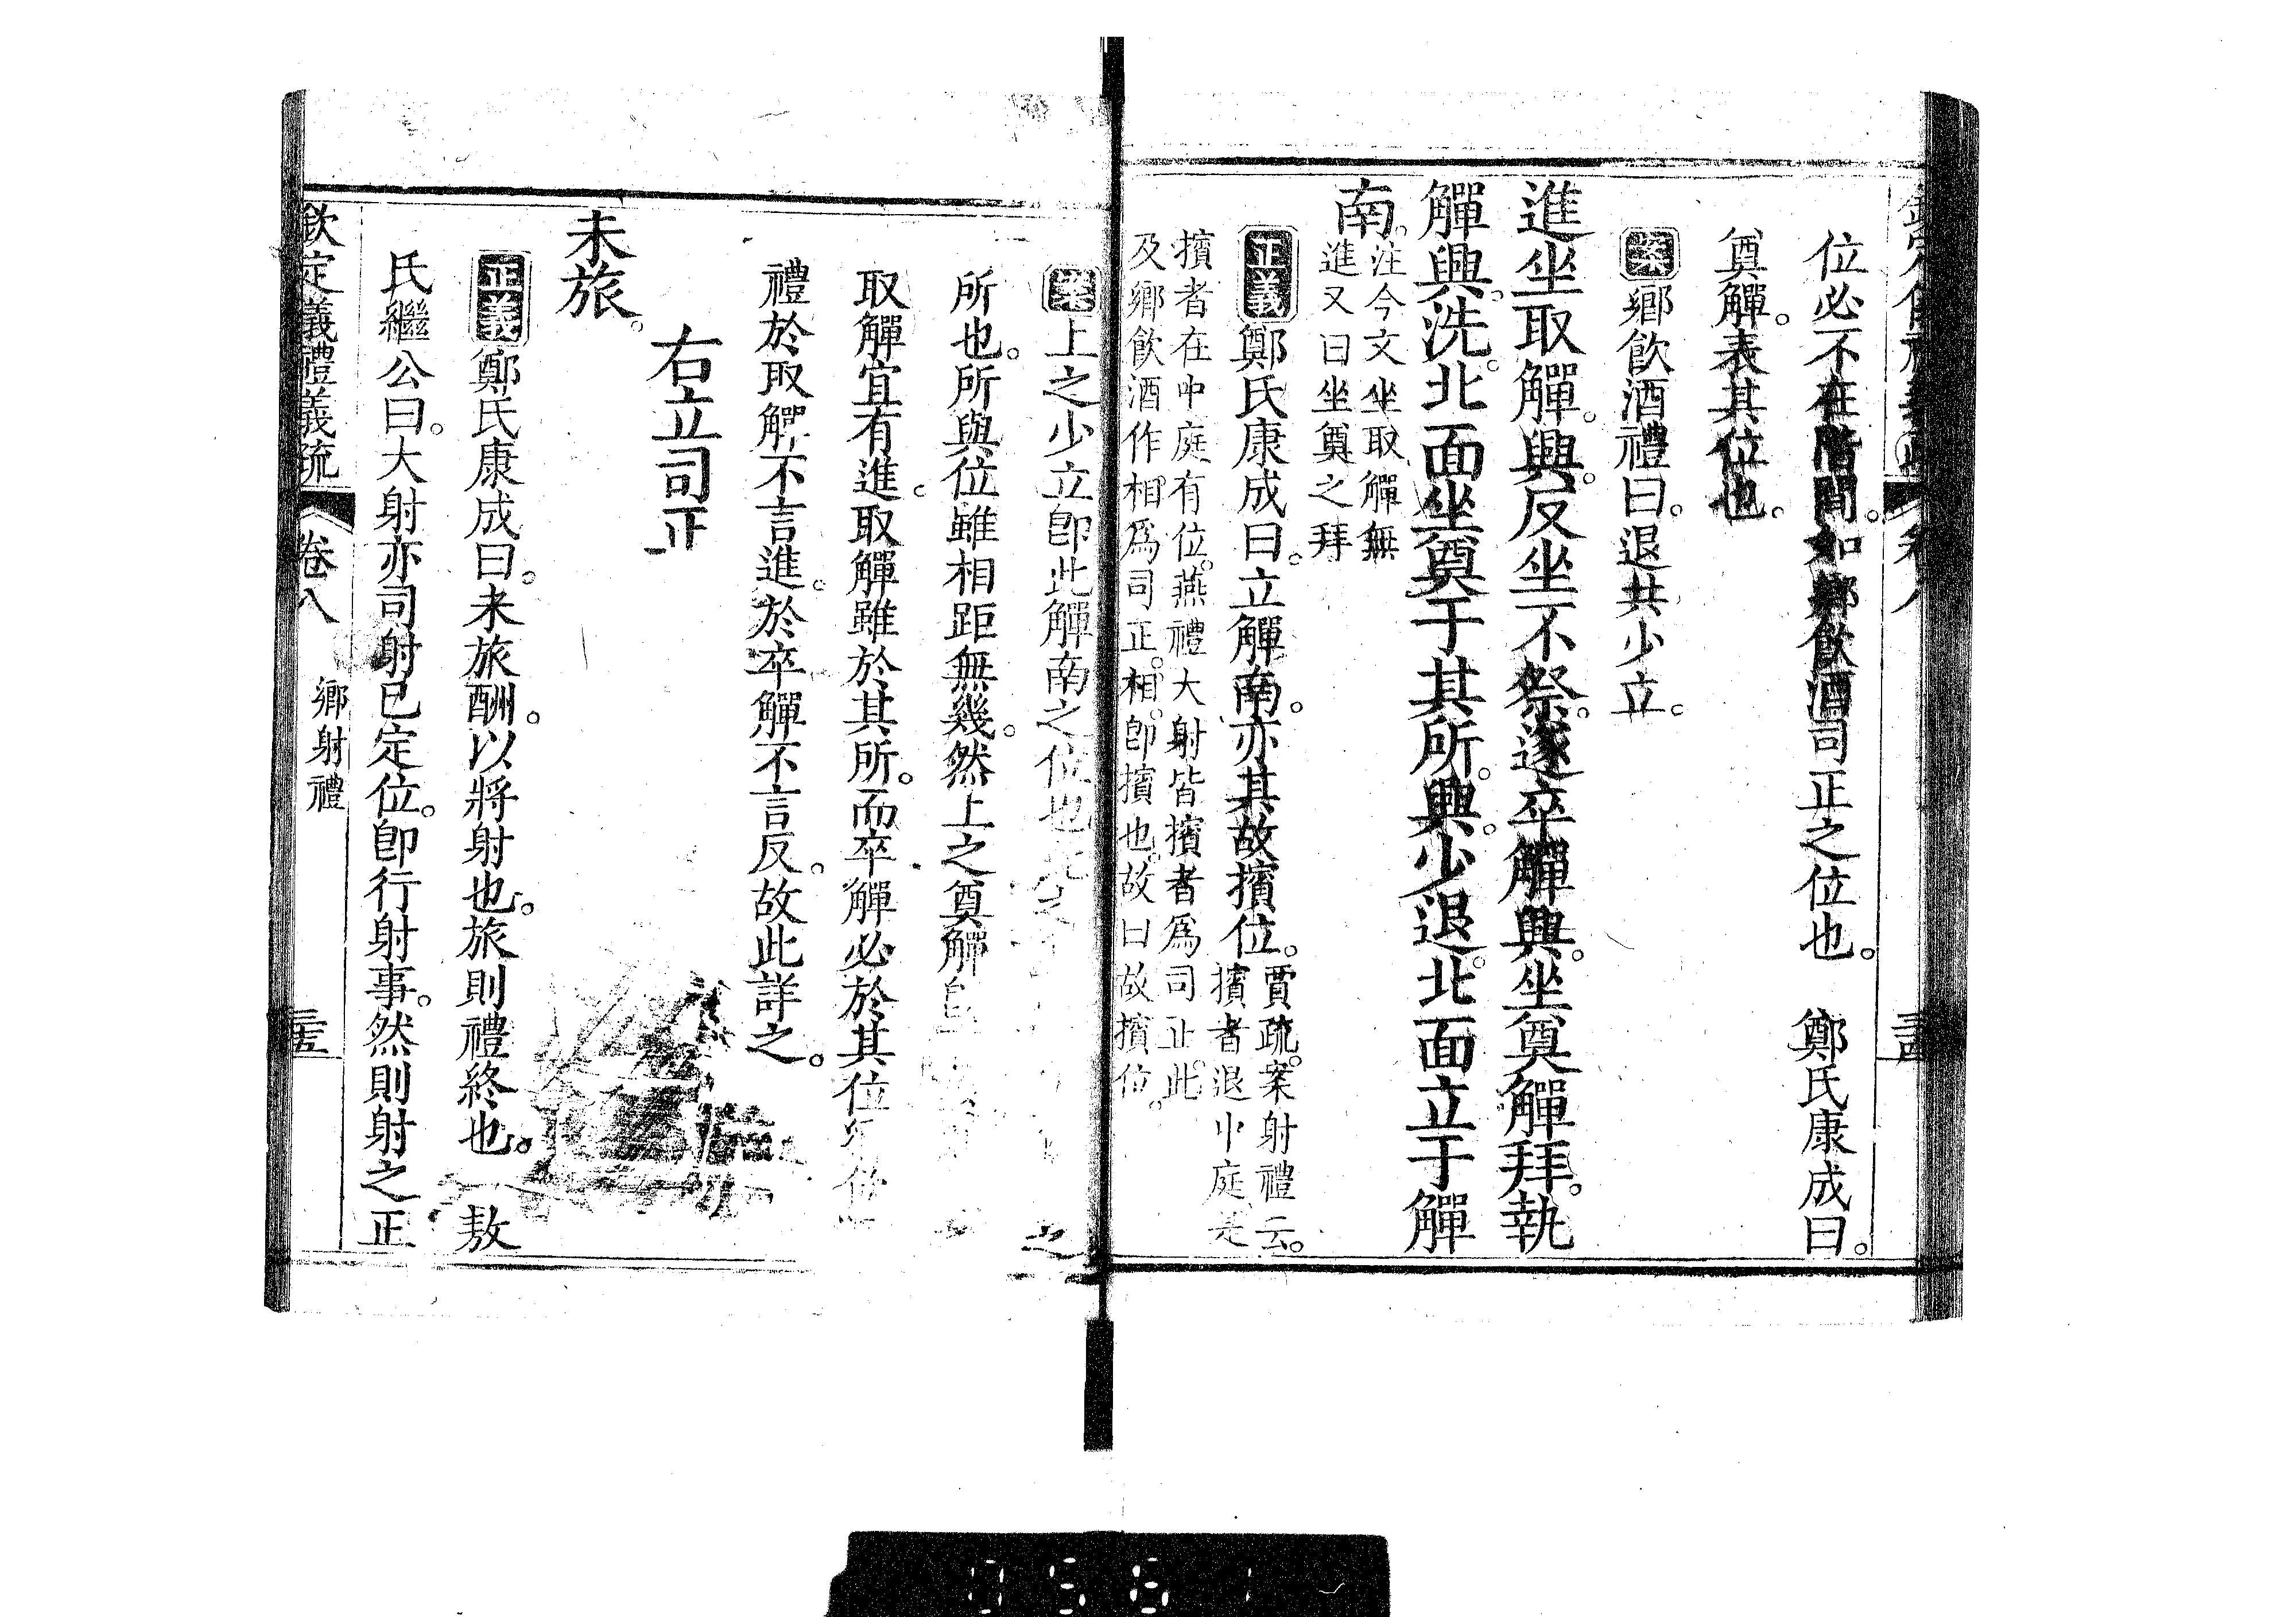 位必不在階間。如鄉飲酒司正之位也。　鄭氏康成曰。
奠觶。表其位也。
案鄉飲酒禮曰。退共少立。
進坐取觶。興。反坐不祭。遂卒觶興。坐奠觶拜。執
觶興。洗。北面坐奠于其所。興。少退。北面立于觶
南。
注今文坐取觶無
進又曰坐奠之拜
正義鄭氏康成曰。立觶南。亦其故擯位。
賈疏。案射禮云。
擯者退中庭是
擯者在中庭有位。燕禮大射皆擯者爲司正。此
及鄉飲酒作相爲司正。相。卽擯也。故曰故擯位。
案上之少立卽此觶南之位也
所也。所與位雖相距無幾。然上之奠觶
取觶宜有進。取觶雖於其所。而卒觶必於其位
禮於取觶不言進。於卒觶不言反。故此詳之。
右立司正
未旅。
正義鄭氏康成曰。未旅酬。以將射也。旅則禮終也。　敖
氏繼公曰。大射亦司射已定位。卽行射事。然則射之正
欽定義禮義疏　卷八　鄉射禮　三五